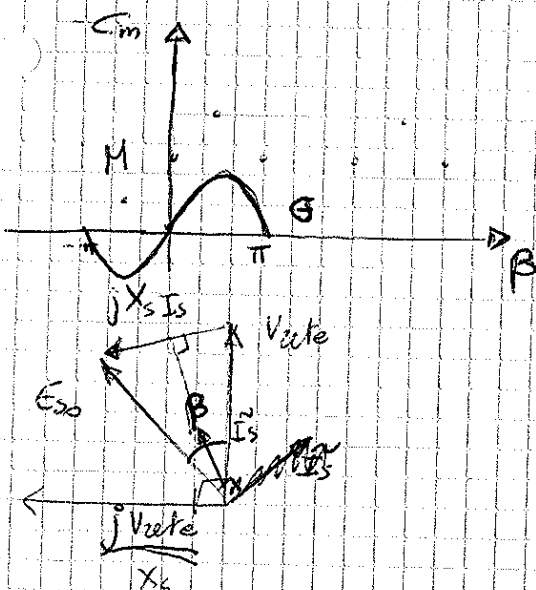 -Cm
M
G
-π
π
β
j Xs Is
Vrete
Eso
β
Is
j Vrete
Xs